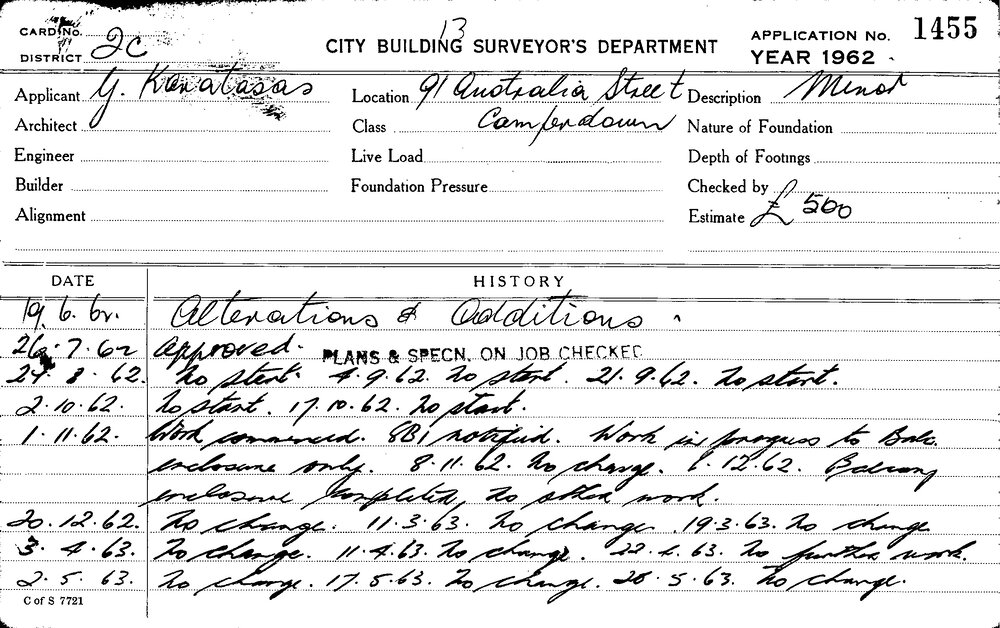 CARD No.
DISTRICT 2C
13
CITY BUILDING SURVEYOR'S DEPARTMENT
APPLICATION No. 1455
YEAR 1962
Applicant Y. Karatasas
Location 91 Australia Street
Description Minor
Architect
Class Camperdown
Nature of Foundation
Engineer
Live Load
Depth of Footings
Builder
Foundation Pressure
Checked by
Alignment
Estimate £ 500
DATE HISTORY
19. 6. 62. Alterations & Additions.
26. 7. 62 Approved. PLANS & SPECN. ON JOB CHECKED
24. 8. 62. No start. 4.9.62. No start. 21.9.62. No start.
2.10.62. No start. 17.10.62. No start.
1.11.62. Work commenced. notified. Work in progress to Balc.
enclosure only. 8.11.62. No change. 6.12.62. Balcony
enclosure completed, no other work.
20.12.62. No change. 11.3.63. No change. 19.3.63. No change
3. 4. 63. No change. 11.4.63. No change. 22.4.63. No further work.
2. 5. 63. No change. 17.5.63. No change. 28.5.63. No change.
C of S 7721